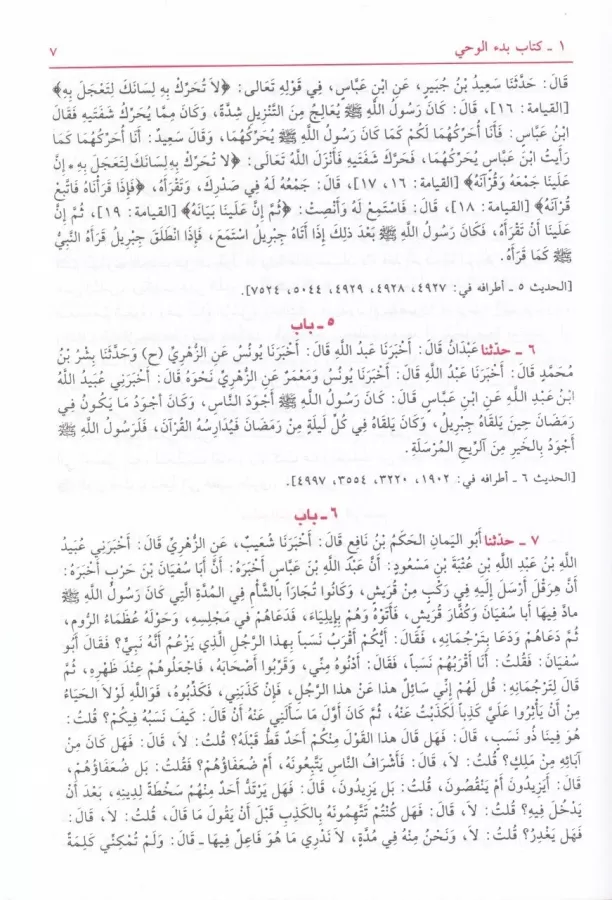 ١ ـ كتاب بدء الوحي ٧
قَالَ: حَدَّثَنَا سَعِيدُ بْنُ جُبَيرٍ، عَنِ ابْنِ عَبَّاسٍ، فِي قَوْلِهِ تَعَالى: ﴿لاَ تُحَرِّكْ بِهِ لِسَانَكَ لِتَعْجَلَ بِهِ﴾
[القيامة: ١٦]، قَالَ: كَانَ رَسُولُ اللَّهِ ﷺ يُعَالِجُ مِنَ التَّنْزِيلِ شِدَّةً، وَكَانَ مِمَّا يُحَرِّكُ شَفَتَيهِ فَقَالَ
ابْنُ عَبَّاسٍ: فَأَنَا أُحَرِّكُهُمَا لَكُمْ كمَا كَانَ رَسُولُ اللَّهِ ﷺ يُحَرِّكُهُمَا، وَقَالَ سَعِيدٌ: أَنَا أُحَرِّكُهُمَا كَمَا
رَأَيتُ ابْنَ عَبَّاسٍ يُحَرِّكُهُمَا، فَحَرَّكَ شَفَتَيهِ فَأَنْزَلَ اللَّهُ تَعَالَى: ﴿لا تُحَرِّكْ بِهِ لِسَانَكَ لِتَعْجَلَ بِهِ * إِنَّ
عَلَينَا جَمْعَهُ وَقُرْآنَهُ﴾ [القيامة: ١٦، ١٧]، قَالَ: جَمْعُهُ لَهُ فِي صَدْرِكَ، وَتَقْرَأَهُ، ﴿فَإِذَا قَرَأْنَاهُ فَاتَّبِعْ
قُرْآنَهُ﴾ [القيامة: ١٨]، قَالَ: فَاسْتَمِعْ لَهُ وَأَنْصِتْ: ﴿ثُمَّ إِنَّ عَلَينَا بَيَانَهُ﴾ [القيامة: ١٩]، ثُمَّ إِنَّ
عَلَينَا أَنْ تَقْرَأَهُ، فَكَانَ رَسُولُ اللَّهِ ﷺ بَعْدَ ذلِكَ إِذَا أَتَاهُ جِبْرِيلُ اسْتَمَعَ، فَإِذَا انْطَلَقَ جِبْرِيلُ قَرَأَهُ النَّبِيُّ
ﷺ كَمَا قَرَأَهُ.
[الحديث ٥ ـ أطرافه في: ٤٩٢٧، ٤٩٢٨، ٤٩٢٩، ٥٠٤٤، ٧٥٢٤].
٥ ـ باب
٦ ـ حدثنا عَبْدَانُ قَالَ: أَخْبَرَنَا عَبدُ اللَّهِ قَالَ: أَخْبَرَنَا يُونُسُ عَنِ الزُّهْرِيِّ (ح) وَحَدَّثَنَا بِشْرُ بْنُ
مُحَمَّدٍ قَالَ: أَخْبَرَنَا عَبْدُ اللَّهِ قَالَ: أَخْبَرَنَا يُونُسُ وَمَعْمَرٌ عَنِ الزُّهْرِيِّ نَحْوَهُ قَالَ: أَخْبَرَنِي عُبَيدُ اللَّهُ
ابْنُ عَبْدِ اللَّهِ عَنِ ابْنِ عَبَّاسٍ قَالَ: كَانَ رَسُولُ اللَّهِ ﷺ أَجْوَدَ النَّاسِ، وَكَانَ أَجْوَدُ مَا يَكُونُ فِي
رَمَضَانَ حِينَ يَلقَاهُ جِبْرِيلُ، وَكَانَ يَلقَاهُ فِي كُلِّ لَيلَةٍ مِنْ رَمَضَانَ فَيُدَارِسُهُ القُرْآنَ، فَلَرَسُولُ اللَّهِ ﷺ
أَجْوَدُ بِالخَيرِ مِنَ الرِّيحِ المُرْسَلَةِ.
[الحديث ٦ ـ أطرافه في: ١٩٠٢، ٣٢٢٠، ٣٥٥٤، ٤٩٩٧].
٦ ـ باب
٧ ـ حدثنا أَبُو اليَمَانِ الحَكَمُ بْنُ نَافِعٍ قَالَ: أَخْبَرَنَا شُعَيبٌ، عَنِ الزُّهْرِيِّ قَالَ: أَخْبَرَنِي عُبَيدُ
اللَّهِ بْنُ عَبْدِ اللَّهِ بْنِ عُتْبَةَ بْنِ مَسْعُودٍ: أَنَّ عَبْدَ اللَّهِ بْنَ عَبَّاسٍ أَخْبَرَهُ: أَنَّ أَبَا سُفيَانَ بْنَ حَرْبٍ أَخْبَرَهُ:
أَنَّ هِرَقْلَ أَرْسَلَ إِلَيهِ فِي رَكْبٍ مِنْ قُرَيشٍ، وَكَانُوا تُجَّاراً بِالشَّأْمِ فِي المُدَّةِ الَّتِي كَانَ رَسُولُ اللَّهِ ﷺ
مادَّ فِيهَا أَبَا سُفيَانَ وَكُفَّارَ قُرَيشٍ، فَأَتَوْهُ وَهُمْ بِإِيلِيَاءَ، فَدَعَاهُمْ فِي مَجْلِسِهِ، وَحَوْلَهُ عُظَمَاءُ الرُّومِ،
ثُمَّ دَعَاهُمْ وَدَعَا بِتَرْجُمَانِهِ، فَقَالَ: أَيُّكُمْ أَقْرَبُ نَسَباً بِهذا الرَّجُلِ الَّذِي يَزْعُمُ أَنَّهُ نَبِيٌّ؟ فَقَالَ أَبُو
سُفيَانَ: فَقُلتُ: أَنَا أَقْرَبُهُمْ نَسَباً، فَقَالَ: أَدْنُوهُ مِنِّي، وَقَرِّبُوا أَصْحَابَهُ، فَاجْعَلُوهُمْ عِنْدَ ظَهْرِهِ، ثُمَّ
قَالَ لِتَرْجُمَانِهِ: قُل لَهُمْ إِنِّي سَائِلٌ هذا عَنْ هذا الرَّجُلِ، فَإِنْ كَذَبَنِي، فَكَذِّبُوهُ، فَوَاللَّهِ لَوْلاَ الحَيَاءُ
مِنْ أَنْ يَأْثِرُوا عَلَيَّ كَذِباً لَكَذَبْتُ عَنْهُ، ثُمَّ كَانَ أَوَّلَ مَا سَأَلَنِي عَنْهُ أَنْ قَالَ: كَيفَ نَسَبُهُ فِيكُمْ؟ قُلتُ:
هُوَ فِينَا ذُو نَسَبٍ، قَالَ: فَهَل قَالَ هذا القَوْلَ مِنْكُمْ أَحَدٌ قَطُّ قَبْلَهُ؟ قُلتُ: لاَ، قَالَ: فَهَل كَانَ مِنْ
آبَائِهِ مِنْ مَلِكٍ؟ قُلتُ: لاَ، قَالَ: فَأَشْرَافُ النَّاسِ يَتَّبِعُونَهُ، أَمْ ضُعَفَاؤُهُمْ؟ فَقُلتُ: بَل ضُعَفَاؤُهُمْ،
قَالَ: أَيَزِيدُونَ أَمْ يَنْقُصُونَ، قُلتُ: بَل يَزِيدُونَ، قَالَ: فَهَل يَرْتَدُّ أَحَدٌ مِنْهُمْ سَخْطَةً لِدِينِهِ، بَعْدَ أَنْ
يَدْخُلَ فِيهِ؟ قُلتُ: لاَ، قَالَ: فَهَل كُنْتُمْ تَتَّهِمُونَهُ بِالكَذِبِ قَبْلَ أَنْ يَقُولَ مَا قَالَ، قُلتُ: لاَ، قَالَ:
فَهَل يَغْدِرُ؟ قُلتُ: لاَ، وَنَحْنُ مِنْهُ فِي مُدَّةٍ، لاَ نَدْرِي مَا هُوَ فَاعِلٌ فِيهَا ـ قَالَ: وَلَمْ تُمْكِنِّي كَلِمَةٌ